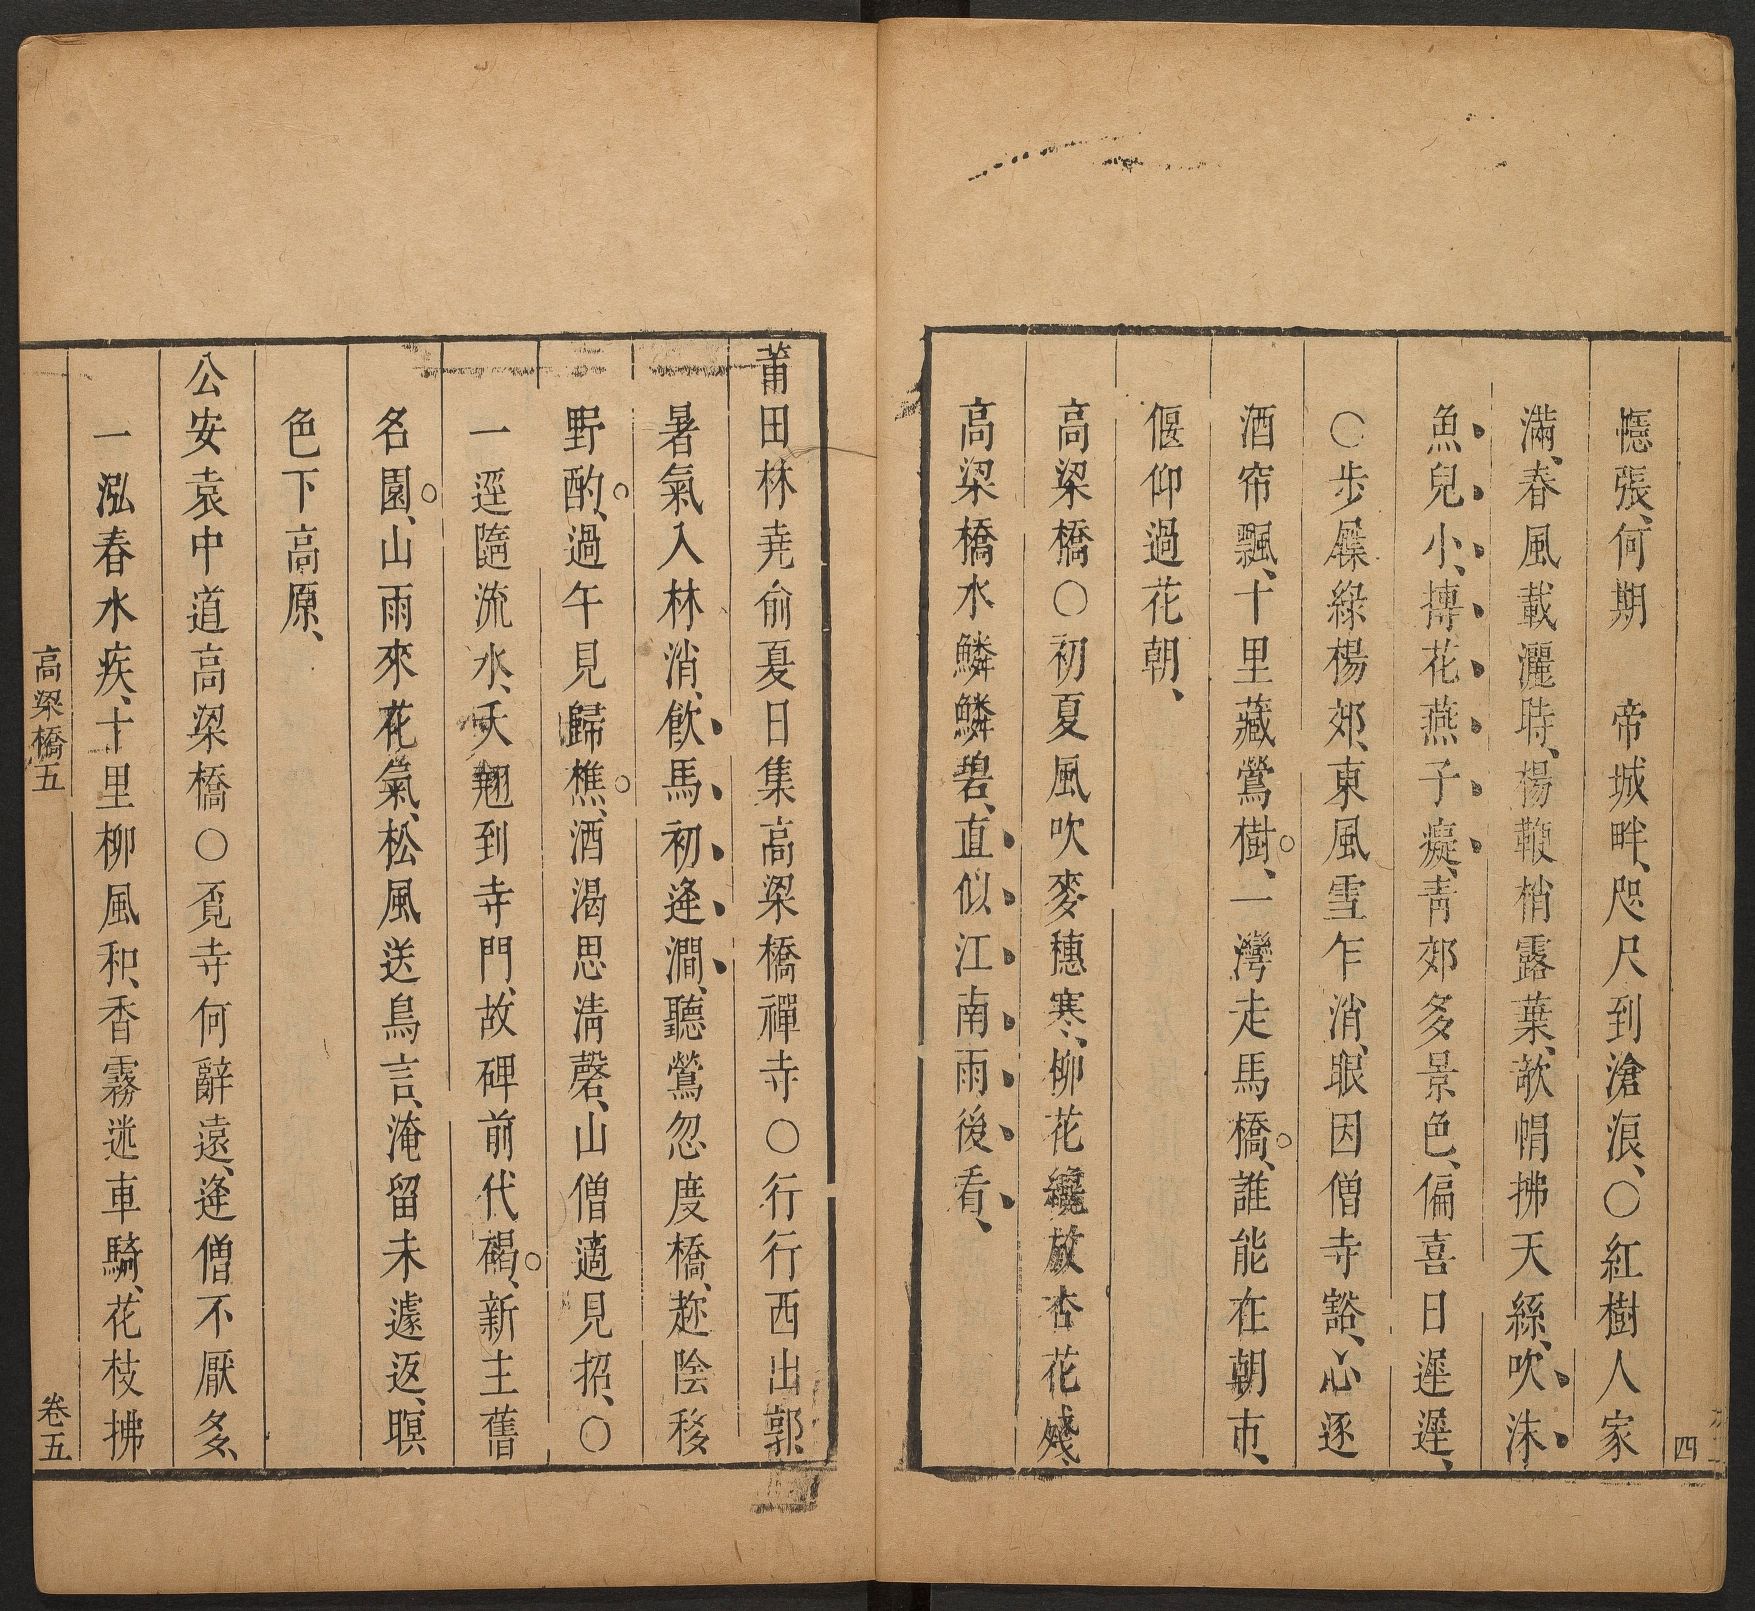 四
幰張、何期　帝城畔、咫尺到滄浪、○紅樹人家
滿、春風載灑時、楊鞭梢露葉、欹帽拂天絲、吹沫
魚兒小、摶花燕子癡、青郊多景色、偏喜日遲遲、
○步屧綠楊郊、東風雪乍消、眼因僧寺豁、心逐
酒帘飄、十里藏鶯樹、一灣走馬橋、誰能在朝市、
偃仰過花朝、
高梁橋○初夏風吹麥穗寒、柳花纔放杏花殘、
高梁橋水鱗鱗碧、直似江南雨後看、
莆田林堯俞夏日集高梁橋禪寺○行行西出郭、
暑氣入林消、飲馬初逢澗、聽鶯忽度橋、趂陰移
野酌、過午見歸樵、酒渴思清磬、山僧適見招、○
一逕隨流水、夭翹到寺門、故碑前代褐、新主舊
名園、山雨來花氣、松風送鳥言、淹留未遽返、暝
色下高原、
公安袁中道高梁橋○覓寺何辭遠、逢僧不厭多、
一泓春水疾、十里柳風和、香霧迷車騎、花枝拂
高梁橋五
卷五